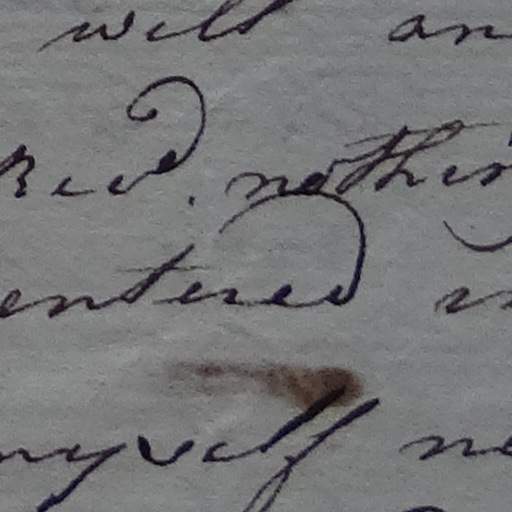 will an
Recd. nothin
entered
myself